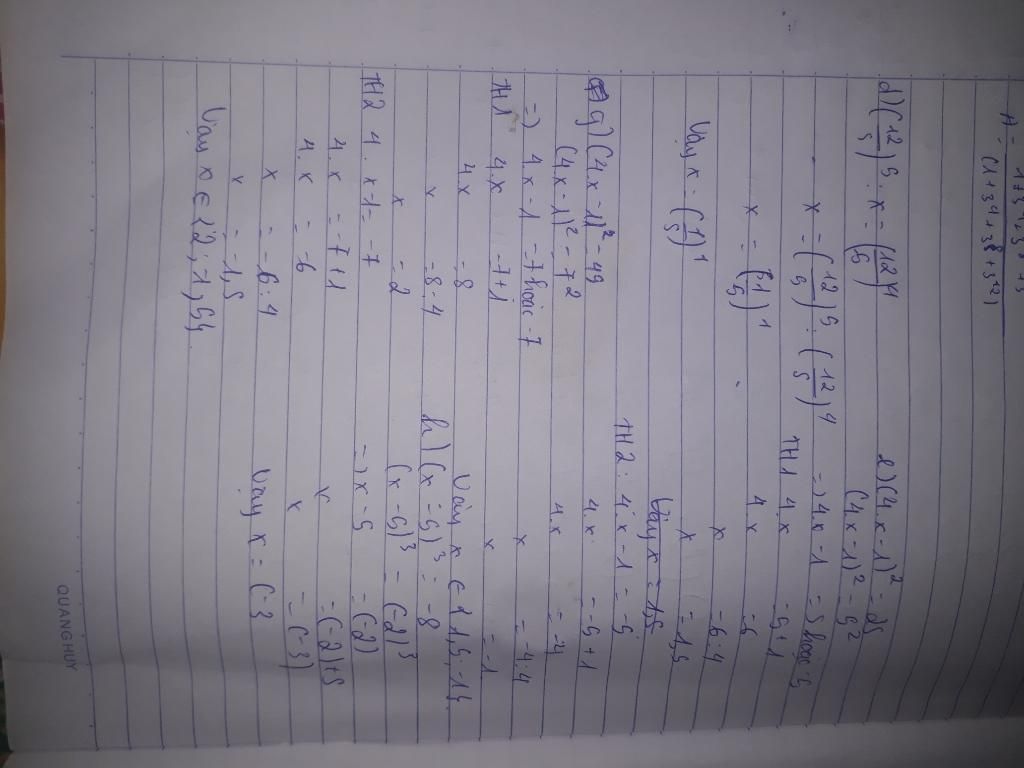 d) (12/5)^5 : x = (12/5)^4
x = (12/5)^5 : (12/5)^4
x = (
)^1
Vậy x =
)^1
g) (4x - 1)^2 = 49
(4x - 1)^2 = 7^2
=) 4x - 1 = 7 hoặc -7
TH1 4x = 7 + 1
4x = 8
x = 8 : 4
x = 2
TH2 4 . x - 1 = -7
4 . x = -7 + 1
4 . x = -6
x = -6 : 4
x = -1,5
Vậy x ∈ {2 ; -1,5}.
e) (4x - 1)^2 = 25
(4x - 1)^2 = 5^2
=) 4x - 1 = 5 hoặc -5
TH1 4x = 5 + 1
4x = 6
x = 6 : 4
x = 1,5
Vậy x = 1,5
TH2 : 4x - 1 = -5
4x = -5 + 1
4x = -4
x = -4 : 4
x = -1
Vậy x ∈ {1,5 ; -1}.
h) (x - 5)^3 = -8
(x - 5)^3 = (-2)^3
=) x - 5 = (-2)
x = (-2) + 5
x = (-3)
Vậy x = (-3
QUANG HUY